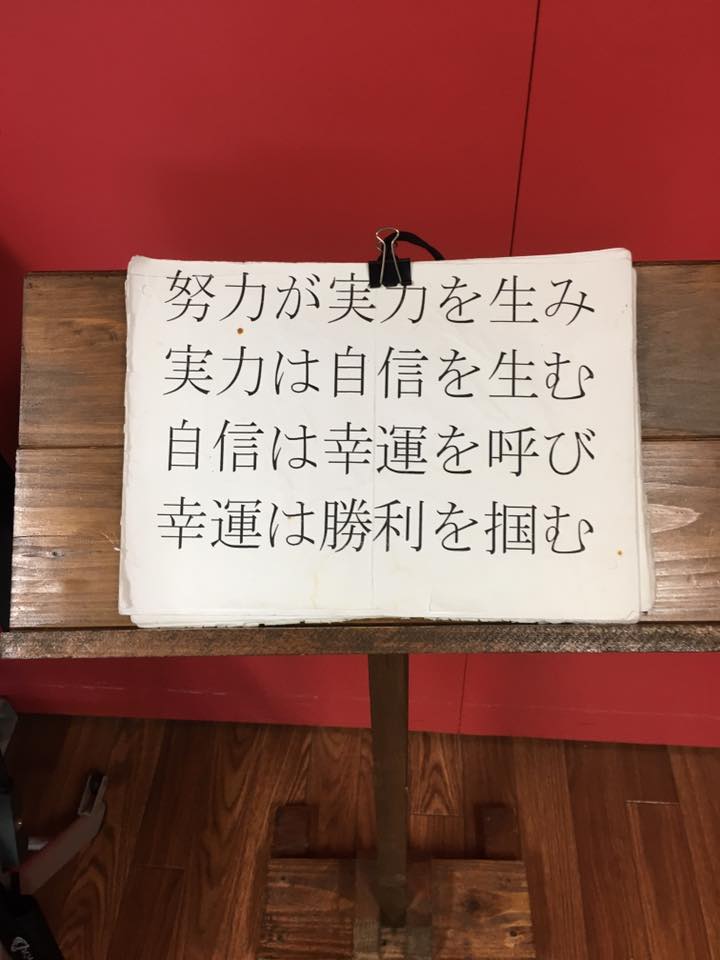 努力が実力を生み
実力は自信を生む
自信は幸運を呼び
幸運は勝利を掴む